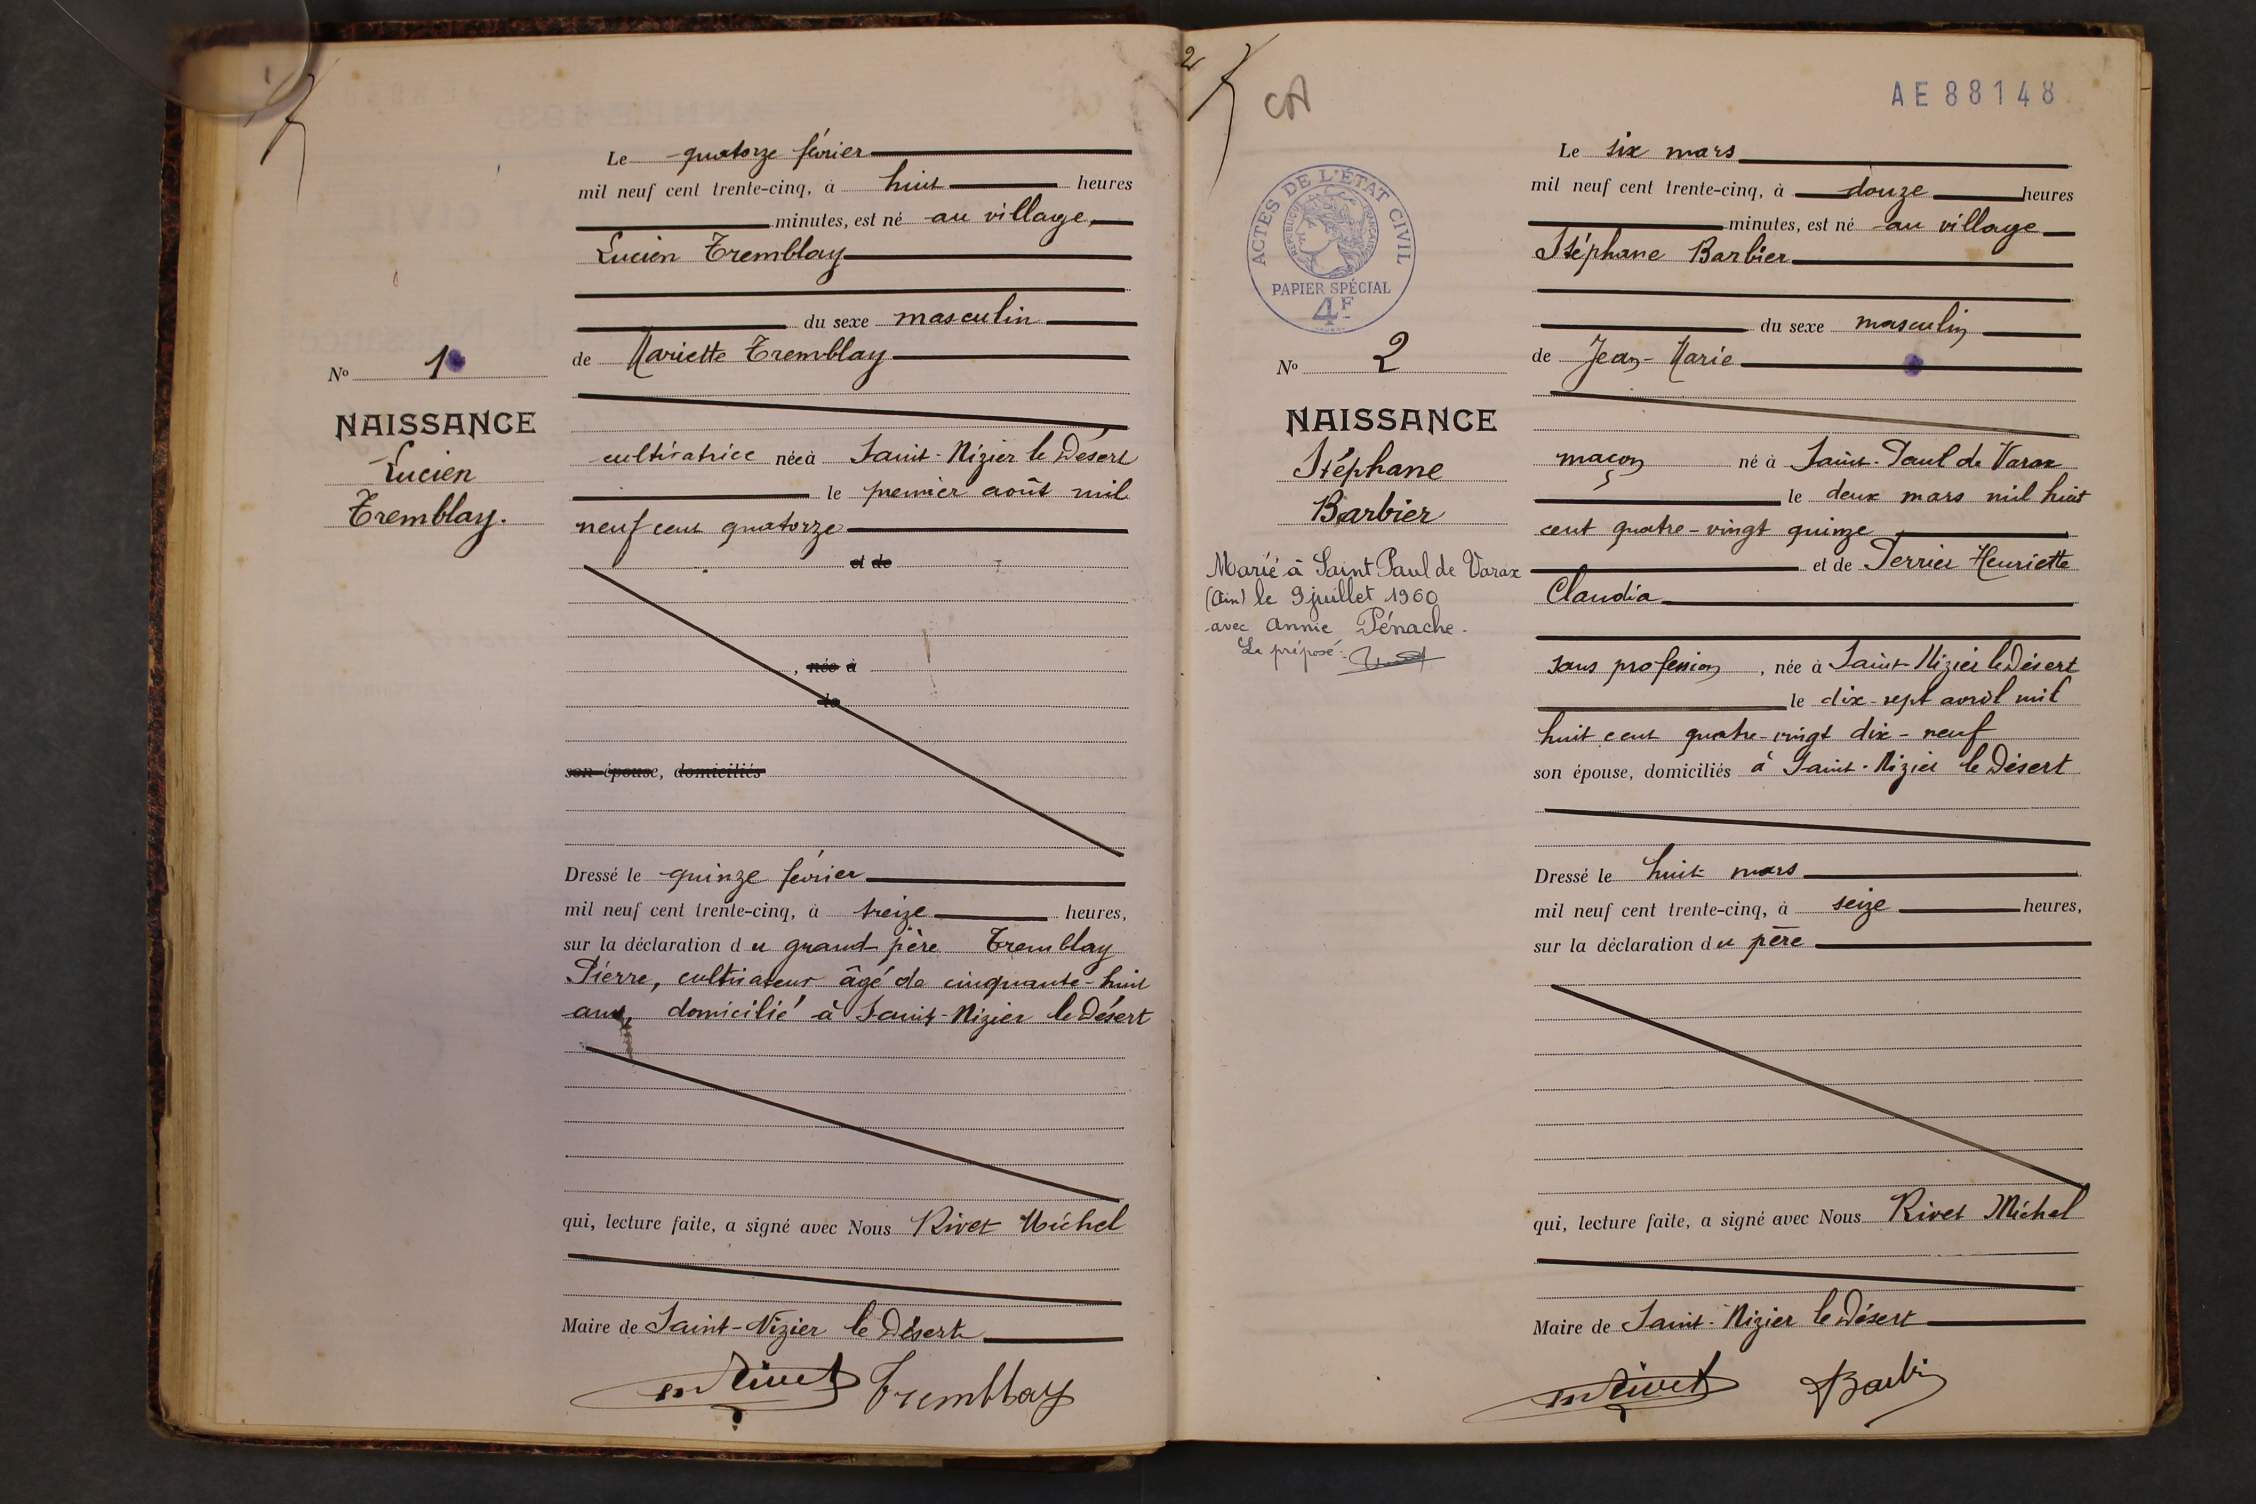 Le quatorze février
mil neuf cent trente-cinq, à huit heures
minutes, est né au village,
Lucien Tremblay
du sexe masculin
de Mariette Tremblay
cultivatrice née à Saint-Nizier le Désert
le premier août mil
neuf cent quatorze
et de
, née à
le
son épouse, domiciliés
Dressé le quinze février
mil neuf cent trente-cinq, à treize heures,
sur la déclaration du grand-père Tremblay
Pierre, cultivateur âgé de cinquante-huit
ans, domicilié à Saint-Nizier le Désert
qui, lecture faite, a signé avec Nous Rivet Michel
Maire de Saint-Nizier le Désert
Tremblay
No 1
NAISSANCE
Lucien
Tremblay.
2
CA
AE88148
ACTES DE L'ÉTAT CIVIL
RÉPUBLIQUE FRANÇAISE
PAPIER SPÉCIAL
4F
No 2
NAISSANCE
Stéphane
Barbier
Marié à Saint Paul de Varax
(Ain) le 9 juillet 1960
avec Annie Pénache.
Le préposé:
Le six mars
mil neuf cent trente-cinq, à douze heures
minutes, est né au village
Stéphane Barbier
du sexe masculin
de Jean-Marie
maçon né à Saint-Paul de Varax
le deux mars mil huit
cent quatre-vingt quinze
et de Perrier Henriette
Claudia
sans profession, née à Saint-Nizier le Désert
le dix-sept avril mil
huit cent quatre-vingt dix-neuf
son épouse, domiciliés à Saint-Nizier le Désert
Dressé le huit mars
mil neuf cent trente-cinq, à seize heures,
sur la déclaration du père
qui, lecture faite, a signé avec Nous Rivet Michel
Maire de Saint-Nizier le Désert